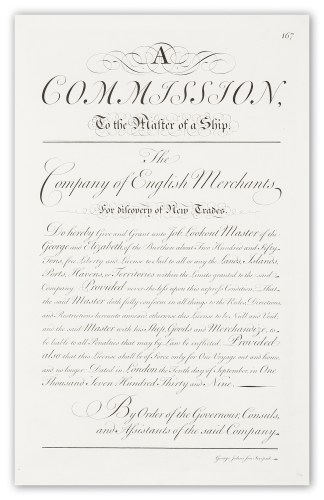 167
A
COMMISSION,
To the Master of a Ship.
The
Company of English Merchants
For discovery of New Trades.
Do hereby Give and Grant unto Job Lookout Master of the
George and Elizabeth of the Burthen about Two Hundred and Fifty
Tons, free Liberty and Licence to Sail to all or any the Lands, Islands,
Ports, Havens, or Territories within the Limits granted to the said
Company Provided nevertheless upon this express Condition, That
the said Master doth fully conform in all things to the Rules, Directions,
and Restrictions hereunto annexed, otherwise this Licence to be Null and Void:
and the said Master with his Ship, Goods and Merchandize, to
be liable to all Penalties that may by Law be inflicted. Provided
also that this Licence shall be of Force only for One Voyage out and home,
and no longer. Dated in London the Tenth day of September, in One
Thousand Seven Hundred Thirty and Nine
By Order of the Governour, Consuls,
and Assistants of the said Company.
George